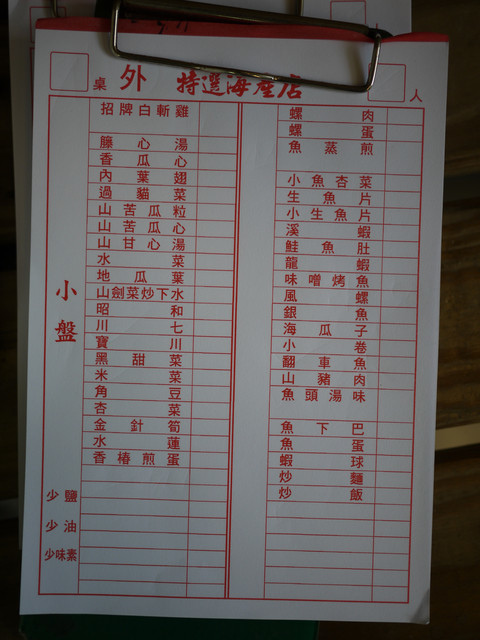 桌 外 特選海產店 人
招牌白斬雞
籐心湯
香瓜心
內葉翅
過貓菜
山苦瓜粒
山苦瓜心
山甘心湯
水菜
地瓜葉
山劍菜炒下水
昭和
川七
寶川
黑甜菜
米菜
角豆
杏菜
金針筍
水蓮
香椿煎蛋
小盤
少鹽
少油
少味素
螺肉
螺蛋
魚蒸煎
小魚杏菜
生魚片
小生魚片
溪蝦
鮭魚肚
龍蝦
味噌烤魚
風螺
銀魚
海瓜子
小卷
翻車魚
山豬肉
魚頭湯味
魚下巴
魚蛋
蝦球
炒麵
炒飯